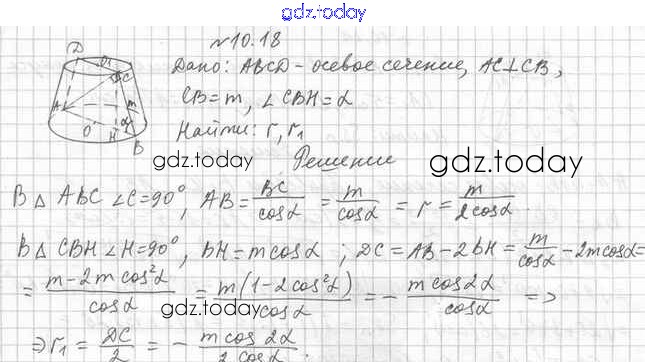 gdz.today
№10.18
Дано: ABCD - осевое сечение, AC⊥CB,
CB=m, ∠CBH=α
Найти: r, r₁
gdz.today
gdz.today
Решение
В △ ABC ∠C=90°, AB = BC/cosα = m/cosα = r = m/2cosα.
В △ CBH ∠H=90°, BH=mcosα ; DC = AB-2BH = m/cosα - 2mcosα =
= m-2mcos²α/cosα = m(1-2cos²α)/cosα = - mcos2α/cosα =>
gdz.today
=> r₁ = DC/2 = - mcos2α/2cosα.
D O₁ C A m α O H B